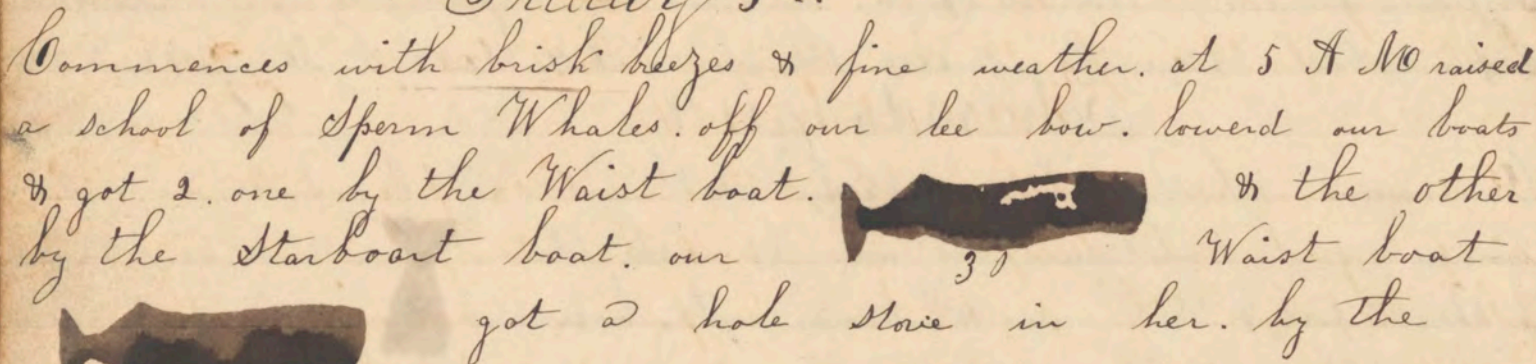 Commences with brisk breezes & fine weather. at 5 A M raised
a school of Sperm Whales. off our lee bow. lowerd our boats
& got 2. one by the Waist boat. & the other
by the Starboart boat. our Waist boat
30
got a hole stove in her. by the